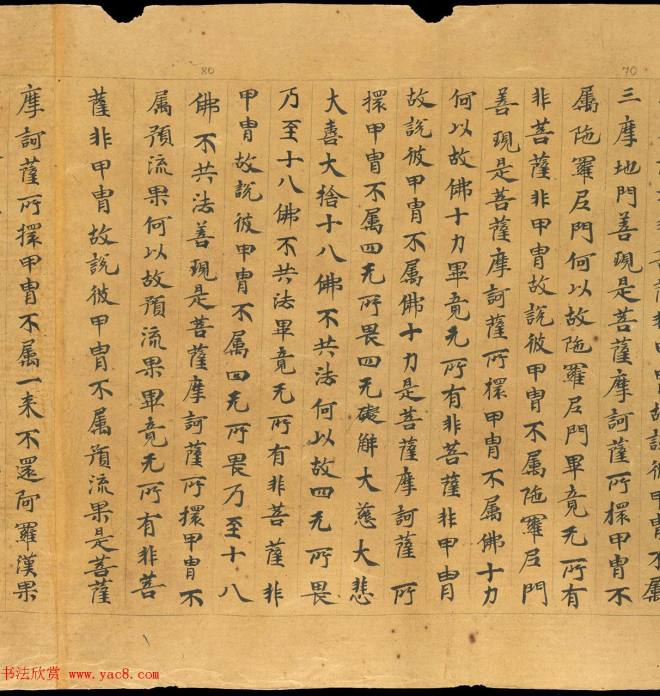 70
80
甲冑故說彼甲冑不属
三摩地門善現是菩薩摩訶薩所擐甲冑不
属陁羅尼門何以故陁羅尼門畢竟无所有
非菩薩非甲冑故說彼甲冑不属陁羅尼門
善現是菩薩摩訶薩所擐甲冑不属佛十力
何以故佛十力畢竟无所有非菩薩非甲冑
故說彼甲冑不属佛十力是菩薩摩訶薩所
擐甲冑不属四无所畏四无礙解大慈大悲
大善大捨十八佛不共法何以故四无所畏
乃至十八佛不共法畢竟无所有非菩薩非
甲冑故說彼甲冑不属四无所畏乃至十八
佛不共法善現是菩薩摩訶薩所擐甲冑不
属預流果何以故預流果畢竟无所有非菩
薩非甲冑故說彼甲冑不属預流果是菩薩
摩訶薩所擐甲冑不属一来不還阿羅漢果
书法欣赏 www.yac8.com